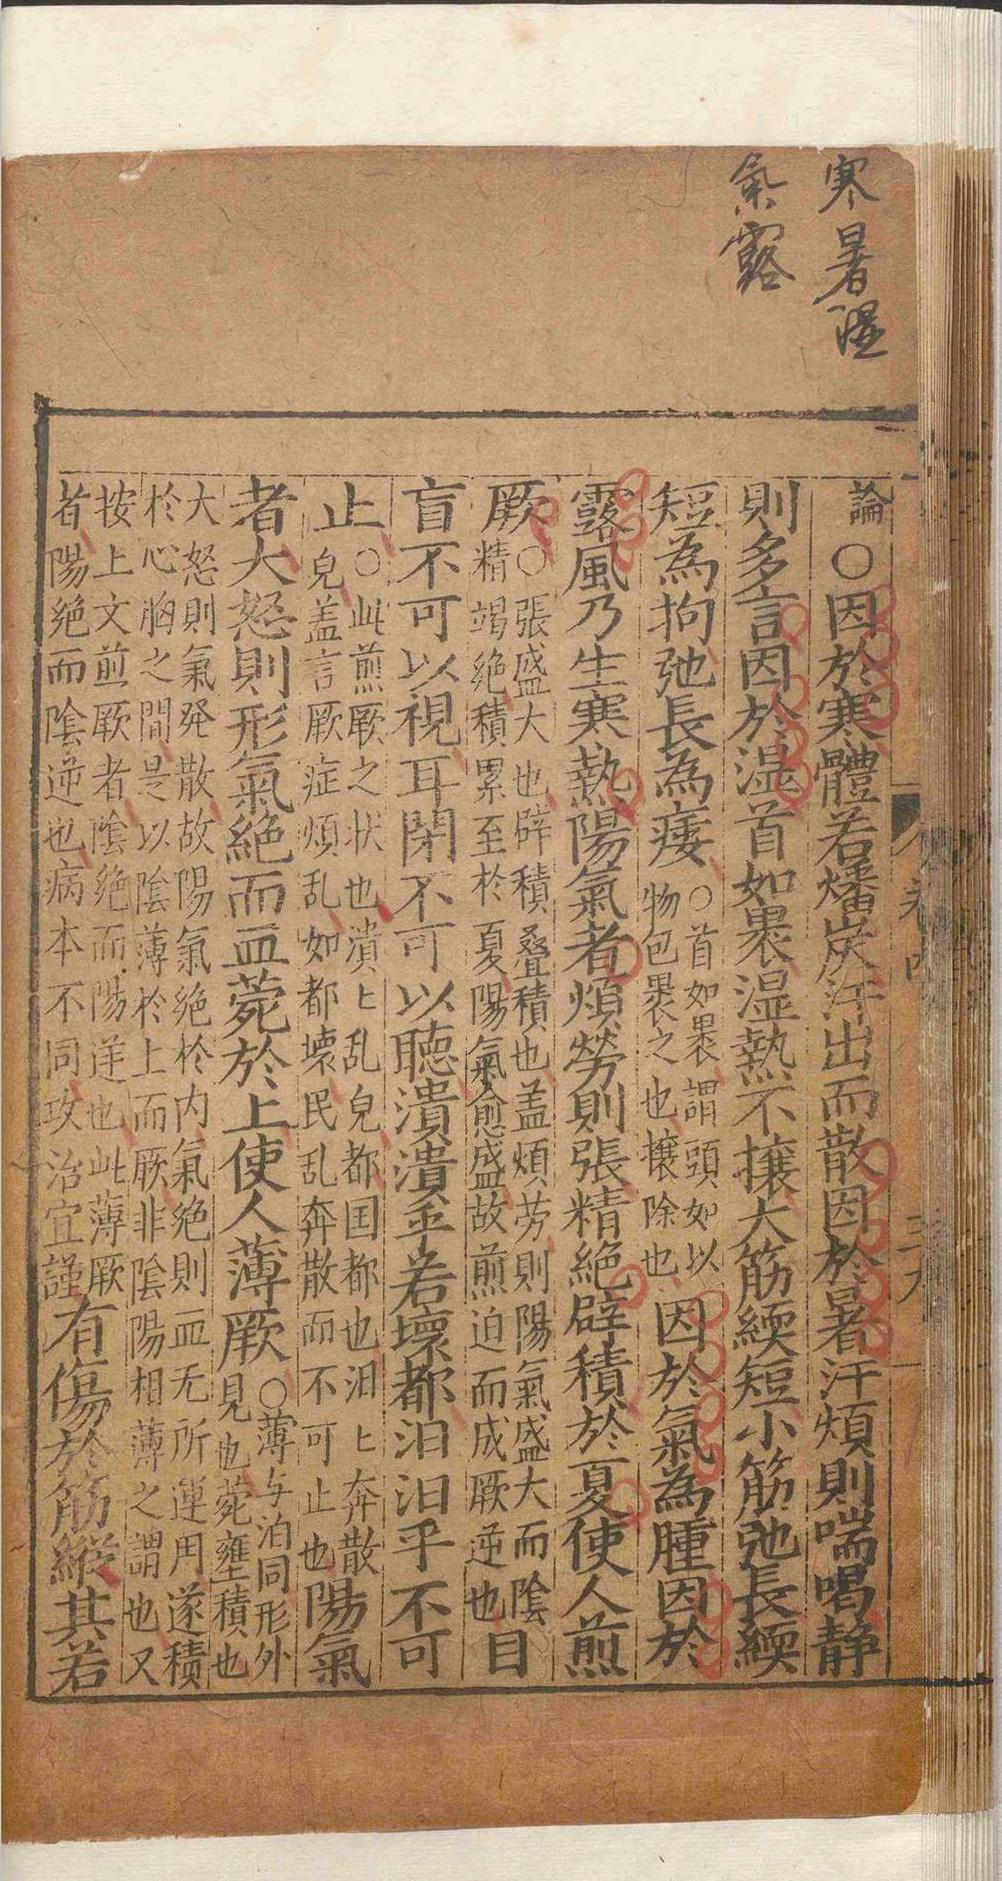 寒暑湿
氣露
論○因於寒體若燔炭汗出而散因於暑汗煩則喘喝静
則多言因於湿首如裹湿熱不攘大筋緛短小筋弛長緛
短為拘弛長為痿○首如裹謂頭如以物包裹之也攘除也因於氣為腫因於
露風乃生寒熱陽氣者煩勞則張精絕辟積於夏使人煎
厥○張盛大也辟積疊積也盖煩劳則陽氣盛大而陰精竭绝積累至於夏陽氣愈盛故煎迫而成厥逆也目
盲不可以視耳閉不可以聽潰潰乎若壞都汩汩乎不可
止○此煎厥之状也潰〻乱皃都国都也汩〻奔散皃盖言厥症煩乱如都壊民乱奔散而不可止也陽氣
者大怒則形氣絕而血菀於上使人薄厥○薄与泊同形外見也菀壅積也
大怒則氣発散故陽氣绝於内氣绝則血无所運用遂積於心胸之間是以陰薄於上而厥非陰陽相薄之謂也又
按上文煎厥者陰绝而陽逆也此薄厥者陽绝而陰逆也病本不同攻治宜謹有傷於筋縱其若